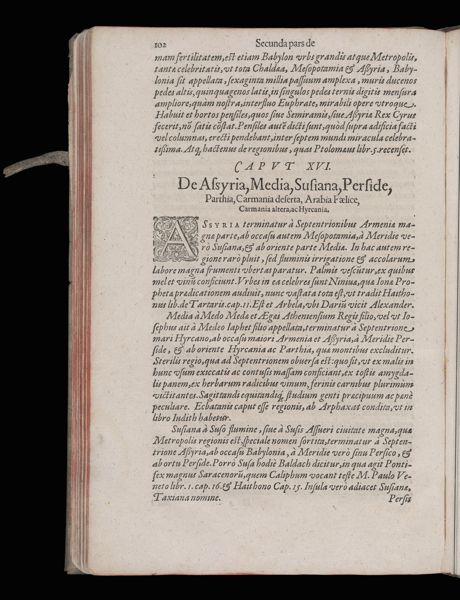 102 Secunda pars de
mam fertilitatem, est etiam Babylon vrbs grandis atque Metropolis,
tanta celebritatis, vt tota Chaldæa, Mesopotamia & Assyria, Baby-
lonia sit appellata, sexaginta millia passuum amplexa, muris ducenos
pedes altis, quinquagenos latis, in singulos pedes ternis digitis mensura
ampliore, quàm nostra, interfluo Euphrate, mirabili opere vtroque.
Habuit et hortos pensiles, quos siue Semiramis, siue Assyria Rex Cyrus
fecerit, nõ satis cõstat. Pensiles autē dicti sunt, quòd supra ædificia facti
vel columnas, erecti pendebant, inter septem mundi miracula celebra-
tissima. Atq; hactenus de regionibus, quas Ptolomæus libr. 5. recenset.
CAPVT XVI.
De Assyria, Media, Susiana, Perside,
Parthia, Carmania deserta, Arabia Fœlice,
Carmania altera, ac Hyrcania.
ASSYRIA terminatur à Septentrionibus Armenia ma-
gna parte, ab occasu autem Mesopotamia, à Meridie ve-
rò Susiana, & ab oriente parte Media. In hac autem re-
gione rarò pluit, sed fluminis irrigatione & accolarum
labore magna frumenti vbertas paratur. Palmis vescũtur, ex quibus
mel et vinũ conficiunt. Vrbes in ea celebres sunt Niniua, quæ Iona Pro-
pheta prædicationem audiuit, nunc vastata tota est, vt tradit Haitho-
nus lib. de Tartaris. cap. 11. Est et Arbela, vbi Dariũ vicit Alexander.
Media à Medo Medeæ et Ægæi Atheniensium Regis filio, vel vt Io-
sephus ait à Medeo Iaphet filio appellata, terminatur à Septentrione
mari Hyrcano, ab occasu maiori Armenia et Assyria, à Meridie Per-
side, & ab oriente Hyrcania ac Parthia, qua montibus excluditur.
Sterilis regio, quæ ad Septentrionem obuersa est: quo fit, vt ex malis in
hunc vsum exiccatis ac contusis massam conficiant, ex tostis amygda-
lis panem, ex herbarum radicibus vinum, ferinis carnibus plurimum
victitantes. Sagittandi equitandiq; studium genti præcipuum ac pæne
peculiare. Ecbatanis caput esse regionis, ab Arphaxat condita, vt in
libro Iudith habetur.
Susiana à Susò flumine, siue à Susis Assueri ciuitate magna, quæ
Metropolis regionis est, speciale nomen sortita, terminatur à Septen-
trione Assyria, ab occasu Babylonia, à Meridie verò sinu Persico, &
ab ortu Perside. Porrò Susa hodie Baldach dicitur, in qua agit Ponti-
fex magnus Saracenorũ, quem Caliphum vocant teste M. Paulo Ve-
neto libr. 1. cap. 16. & Haithono Cap. 15. Insula verò adiacet Susianæ,
Taxiana nomine. Persis